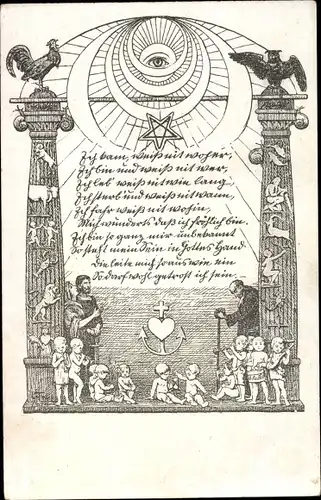 Ich kam, weiß nit woher,
Ich bin und weiß nit wer,
Ich leb weiß nit wie lang
Ich sterb und weiß nit wann,
Ich fahr weiß nit wohin.
Mich wunderts daß ich fröhlich bin.
Ich bin so ganz mir unbekannt
So steht mein Sein in Gottes Hand
Die leite mich so aus wie ein
So darf wohl getrost ich sein